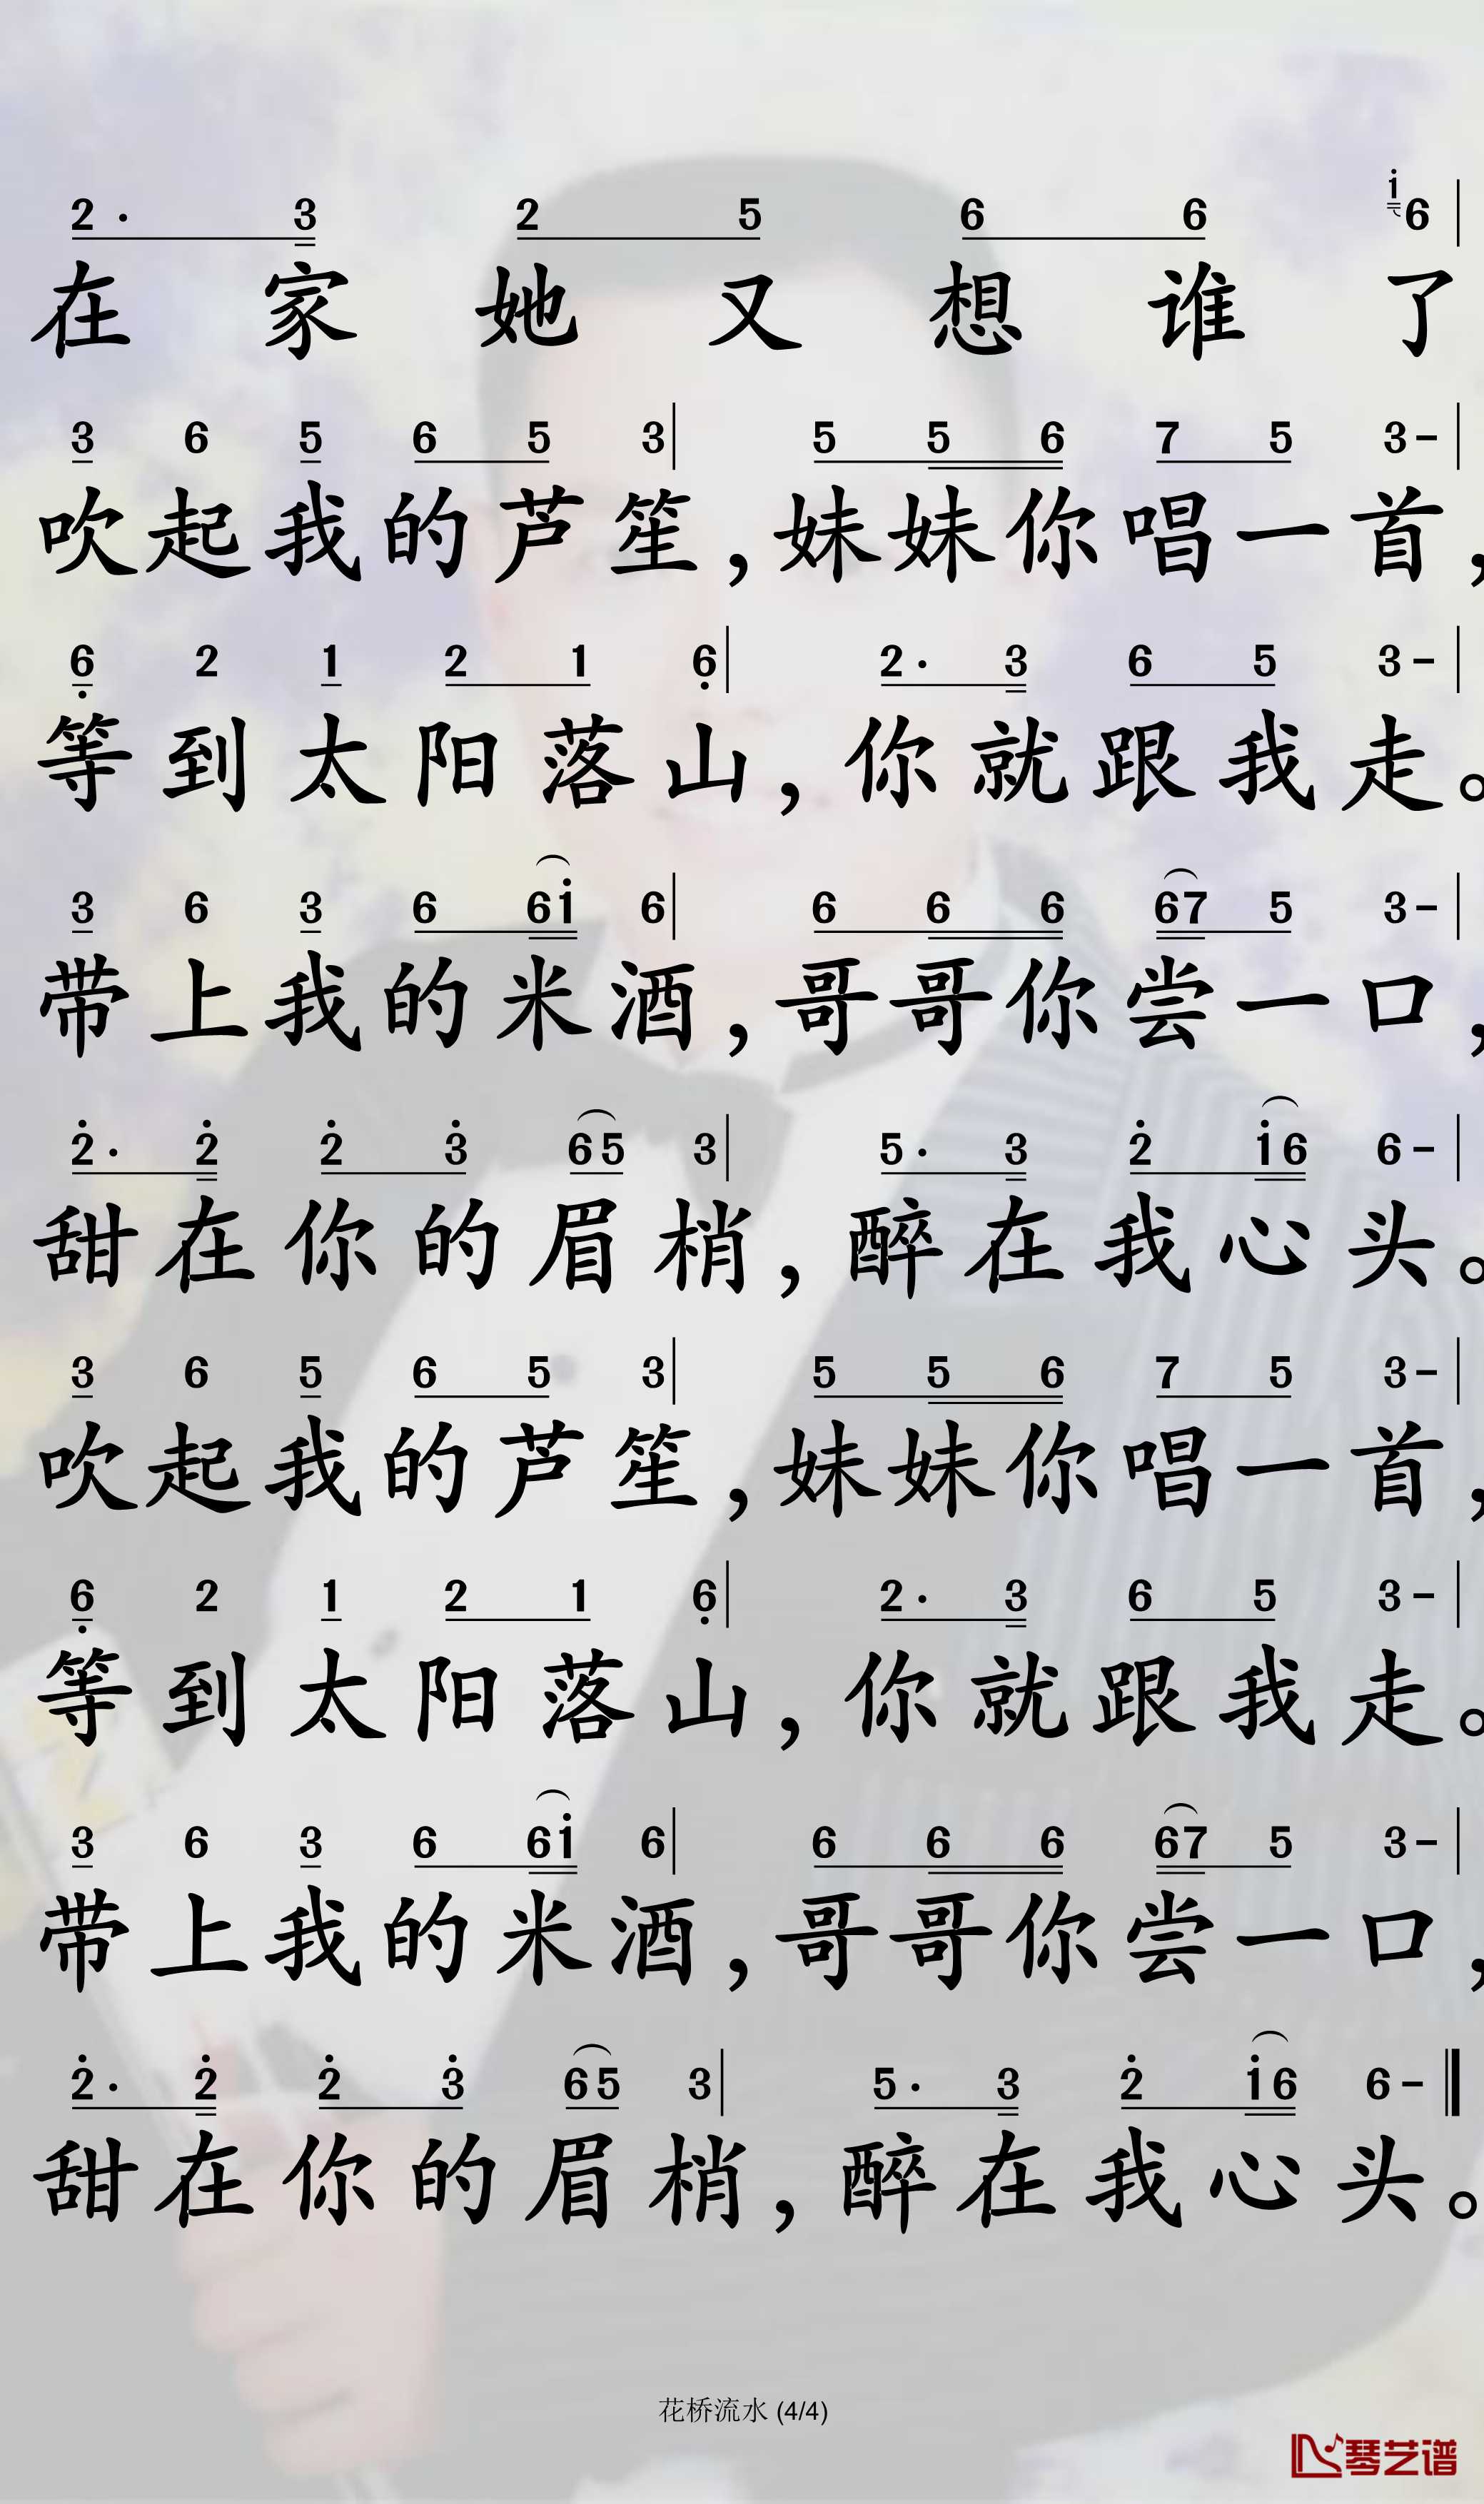 2· 3 2 5 6 6 i6|
在家她又想谁了
3 6 5 6 5 3| 5 5 6 7 5 3-|
吹起我的芦笙,妹妹你唱一首,
6̣ 2 1 2 1 6̣| 2· 3 6 5 3-|
等到太阳落山,你就跟我走。
3 6 3 6 6i 6| 6 6 6 67 5 3-|
带上我的米酒,哥哥你尝一口,
2̇· 2̇ 2̇ 3̇ 65 3| 5· 3 2̇ i6 6-|
甜在你的眉梢,醉在我心头。
3 6 5 6 5 3| 5 5 6 7 5 3-|
吹起我的芦笙,妹妹你唱一首,
6̣ 2 1 2 1 6̣| 2· 3 6 5 3-|
等到太阳落山,你就跟我走。
3 6 3 6 6i 6| 6 6 6 67 5 3-|
带上我的米酒,哥哥你尝一口,
2̇· 2̇ 2̇ 3̇ 65 3| 5· 3 2̇ i6 6-‖
甜在你的眉梢,醉在我心头。
花桥流水 (4/4)
琴艺谱